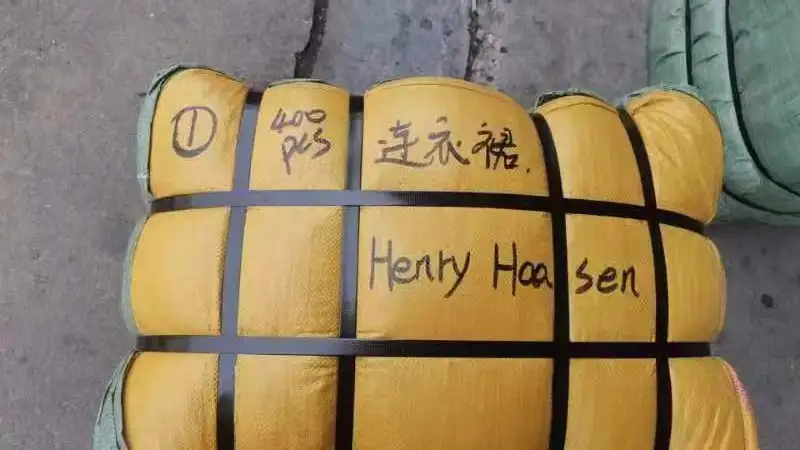 ① 400 pcs 连衣裙.
Henry Haasen